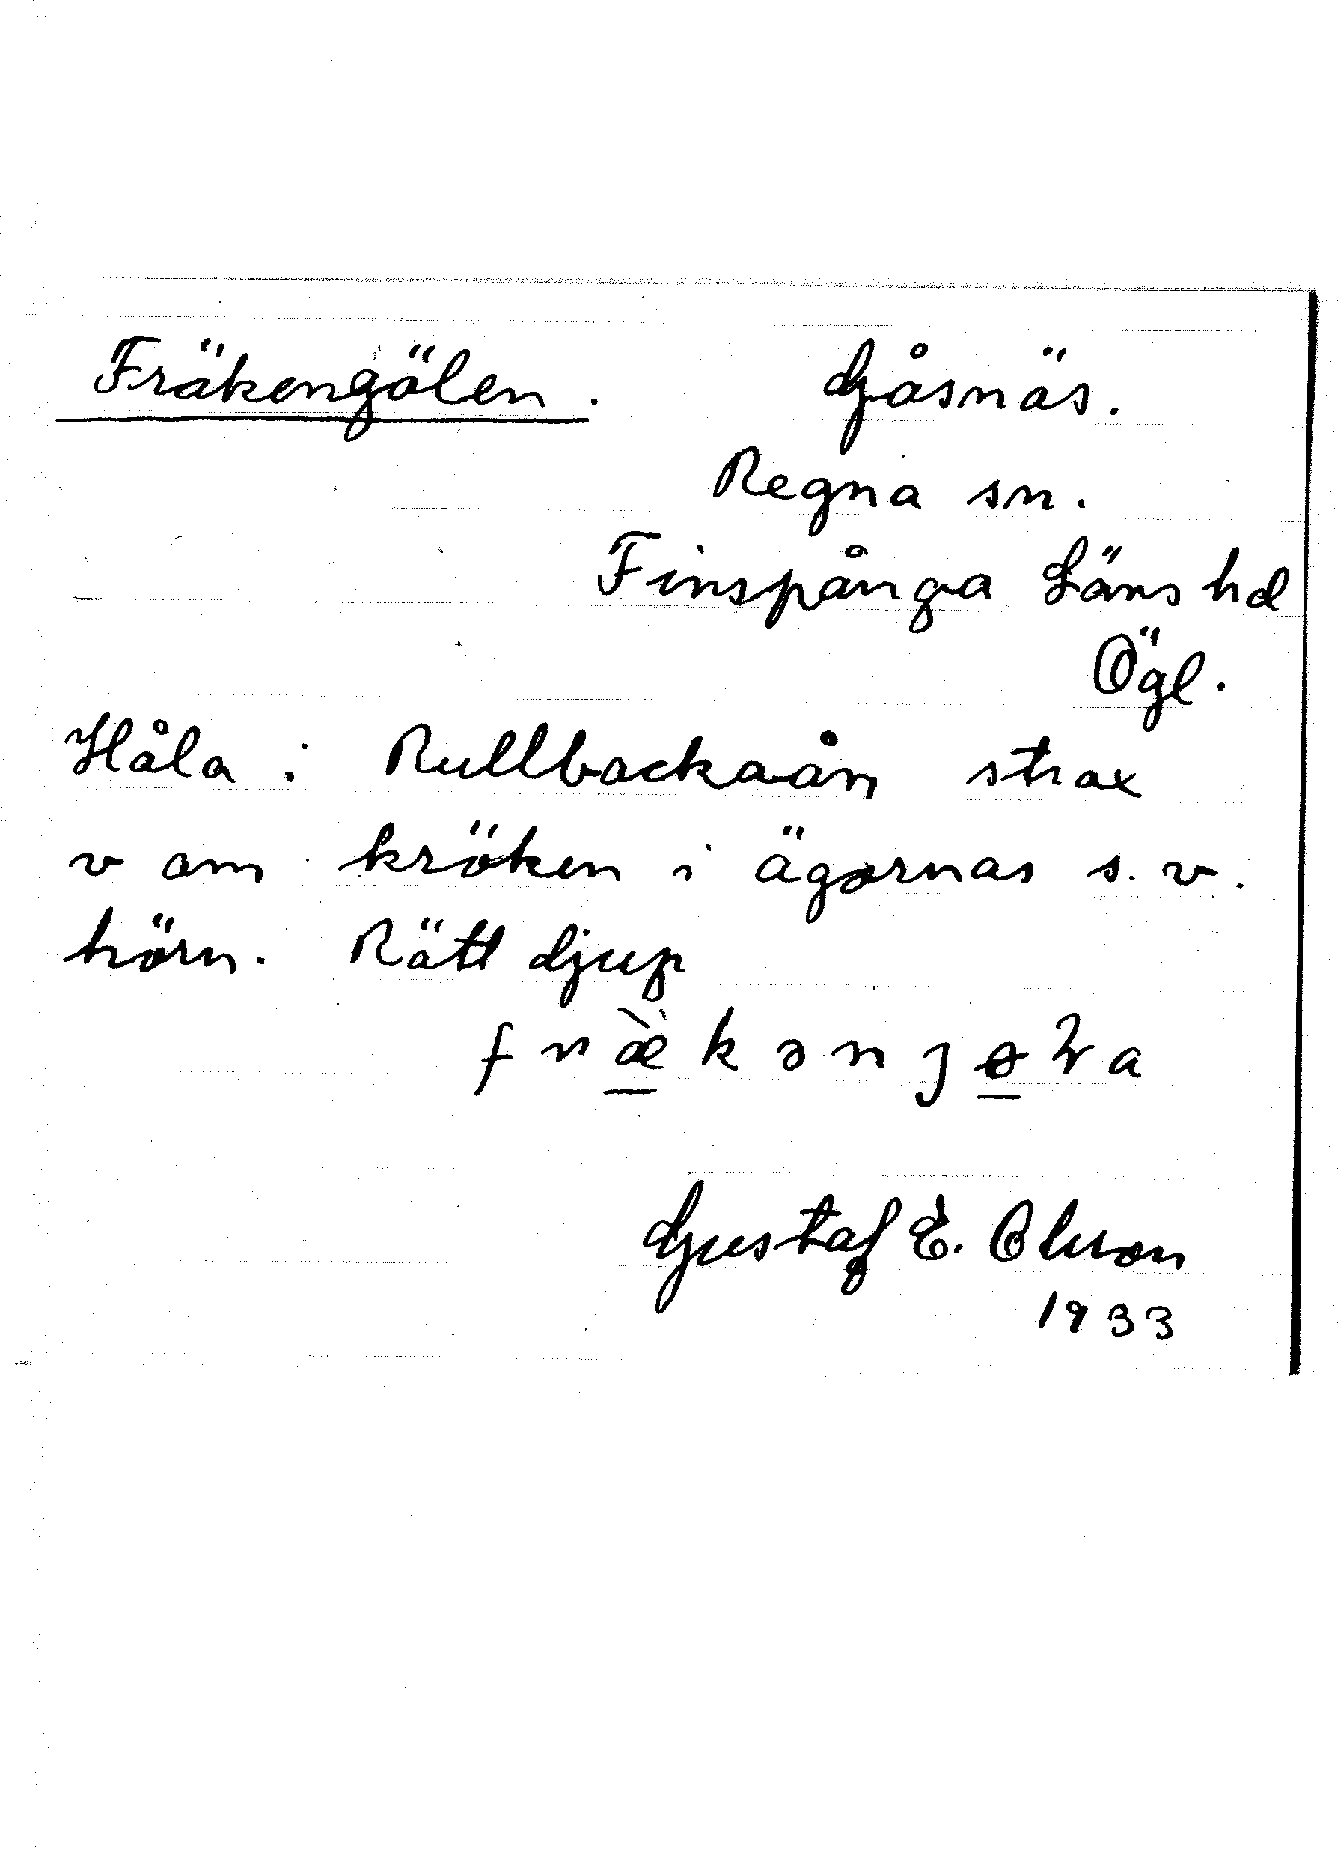 Fräkengölen. Gåsnäs.
Regna sn.
Finspånga Läns hd
Ögl.
Håla i Rullbackaån strax
v om kröken i ägornas s.v.
hörn. Rätt djup
Gustaf E. Olsson
1933